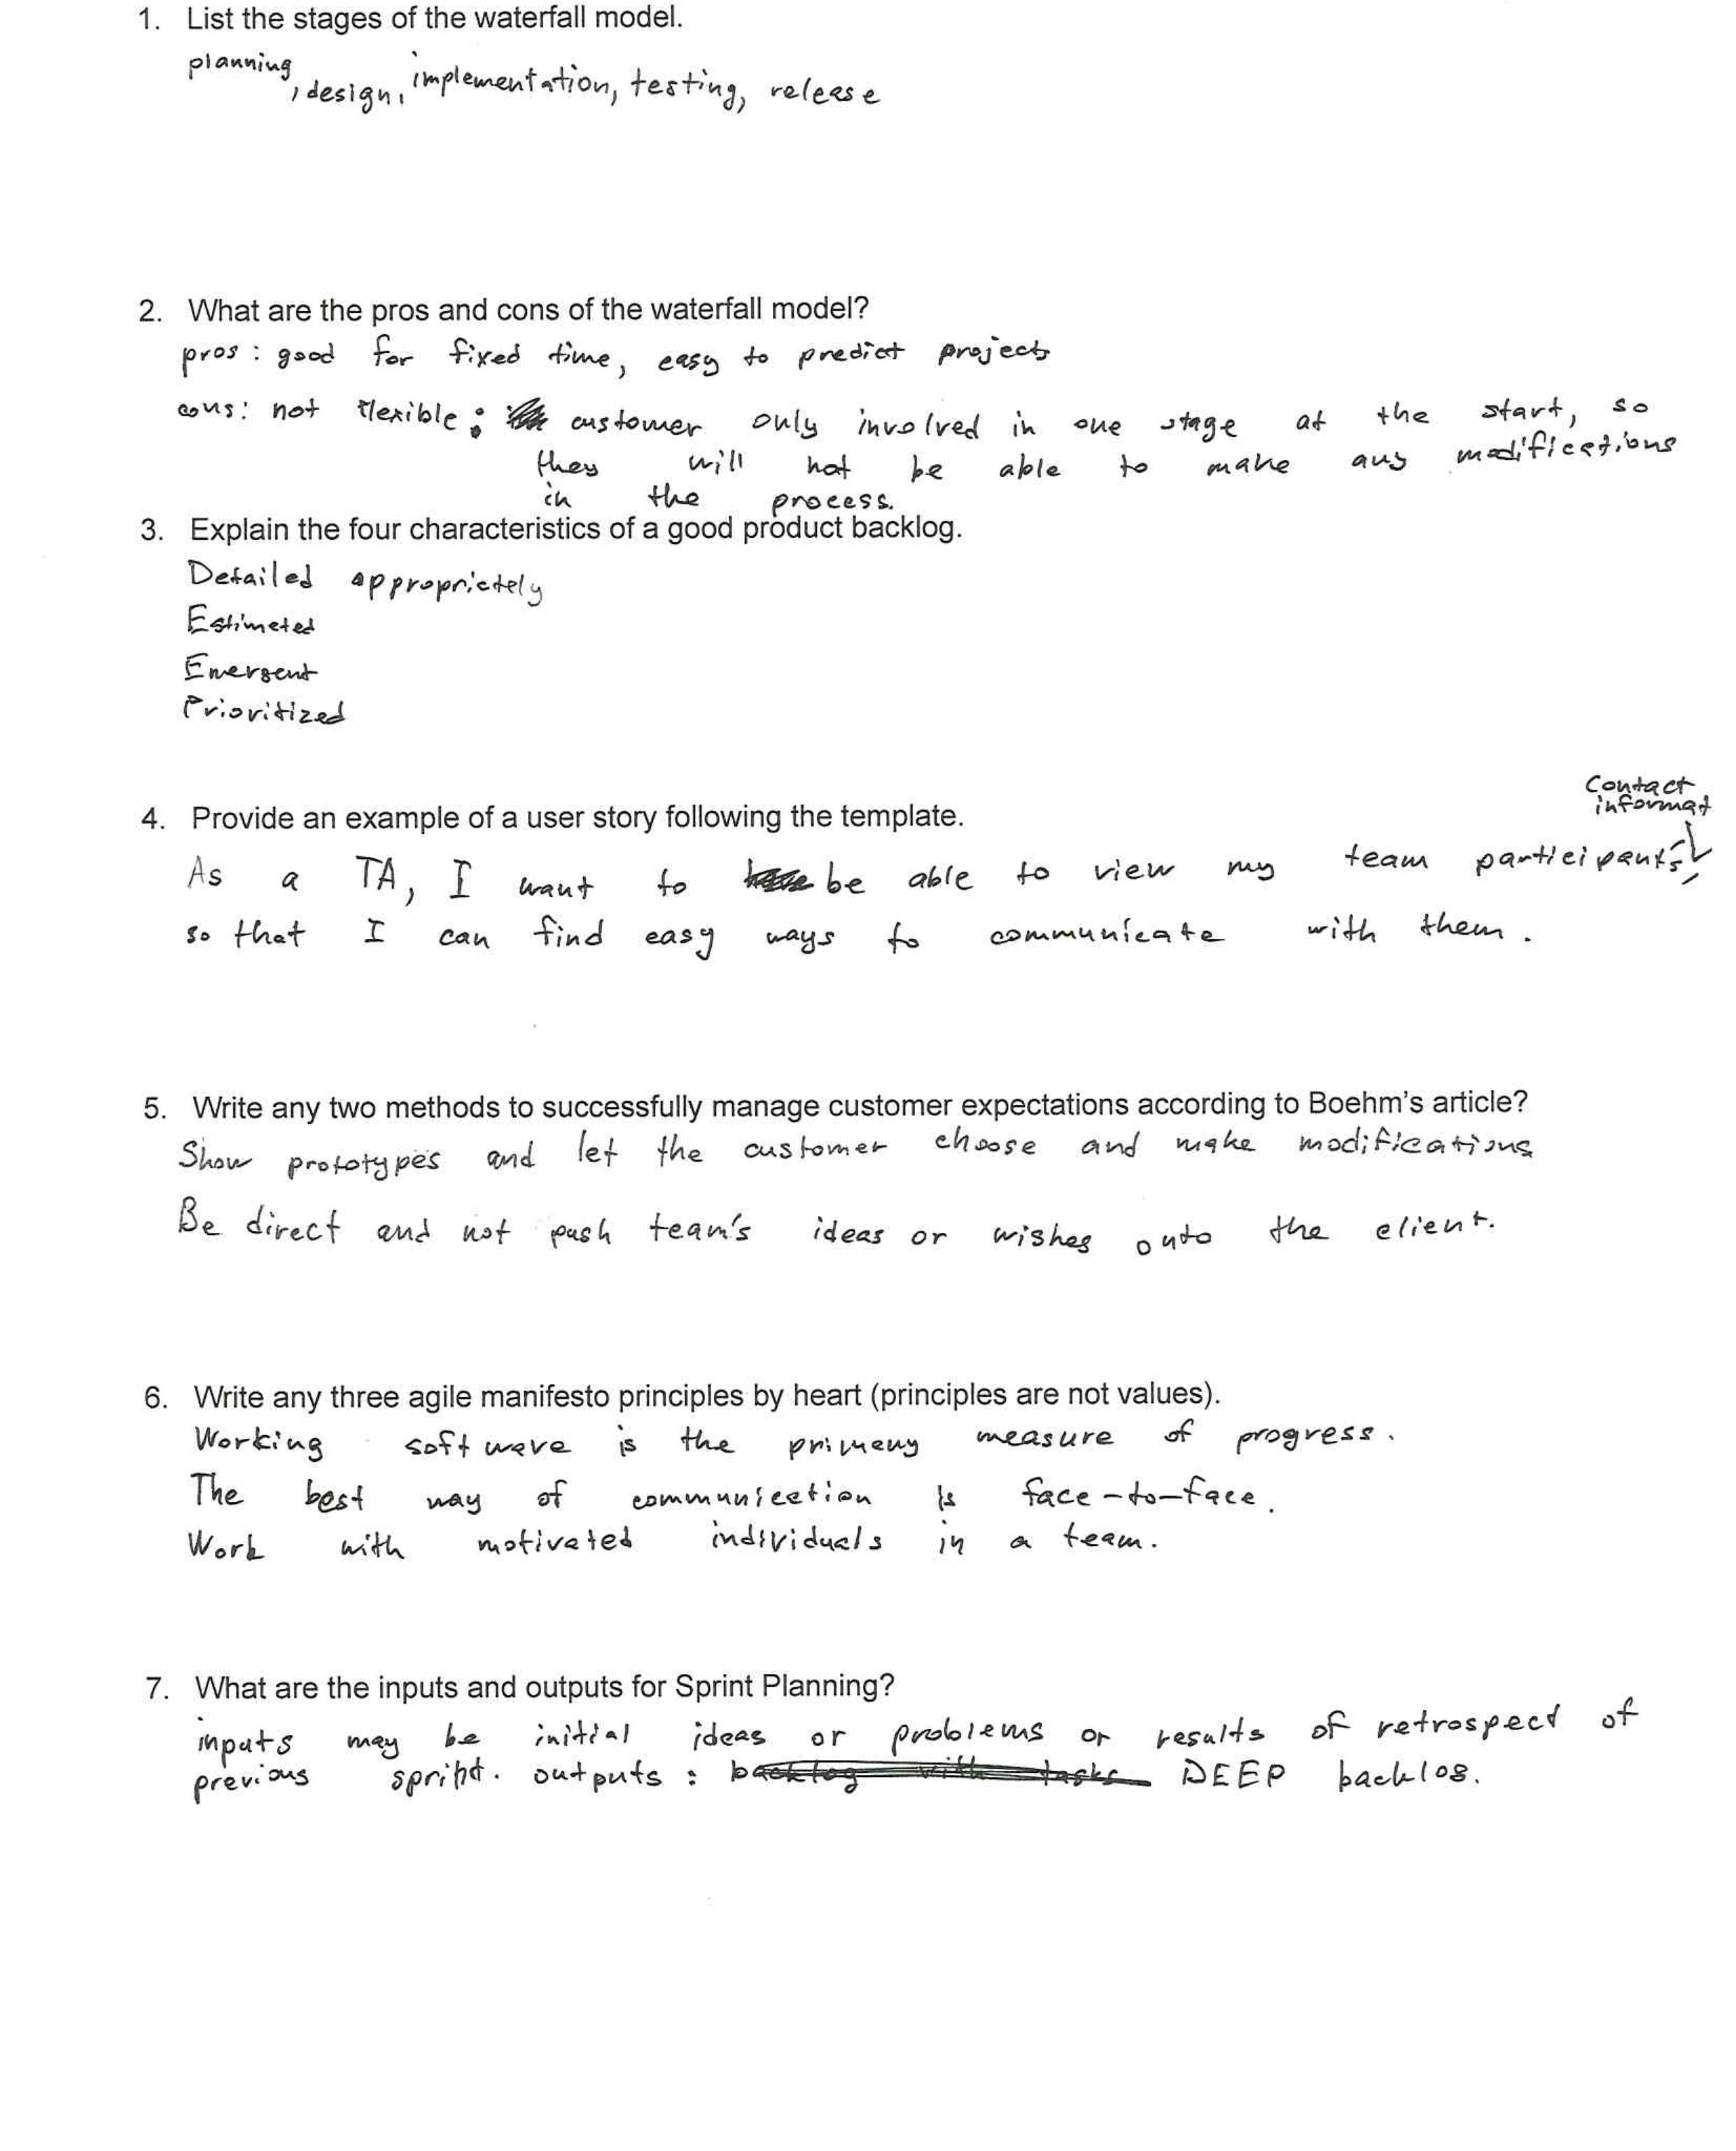 1. List the stages of the waterfall model.
planning, design, implementation, testing, release
2. What are the pros and cons of the waterfall model?
pros : good for fixed time, easy to predict projects
cons: not flexible; customer only involved in one stage at the start, so
they will not be able to make any modifications
in the process.
3. Explain the four characteristics of a good product backlog.
Detailed appropriately
Estimated
Emergent
Prioritized
4. Provide an example of a user story following the template.
Contact
informat
As a TA, I want to be able to view my team participants'
so that I can find easy ways to communicate with them.
5. Write any two methods to successfully manage customer expectations according to Boehm's article?
Show prototypes and let the customer choose and make modifications
Be direct and not push team's ideas or wishes onto the client.
6. Write any three agile manifesto principles by heart (principles are not values).
Working software is the primary measure of progress.
The best way of communication is face-to-face.
Work with motivated individuals in a team.
7. What are the inputs and outputs for Sprint Planning?
inputs may be initial ideas or problems or results of retrospect of
previous sprint. outputs : backlog with tasks DEEP backlog.